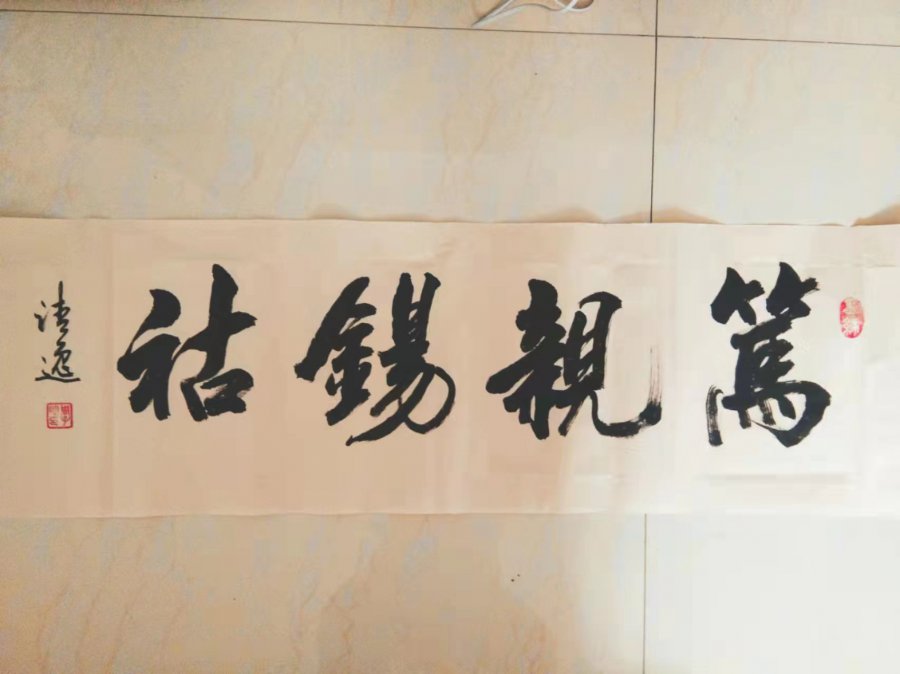 篤親錫祜
清逸